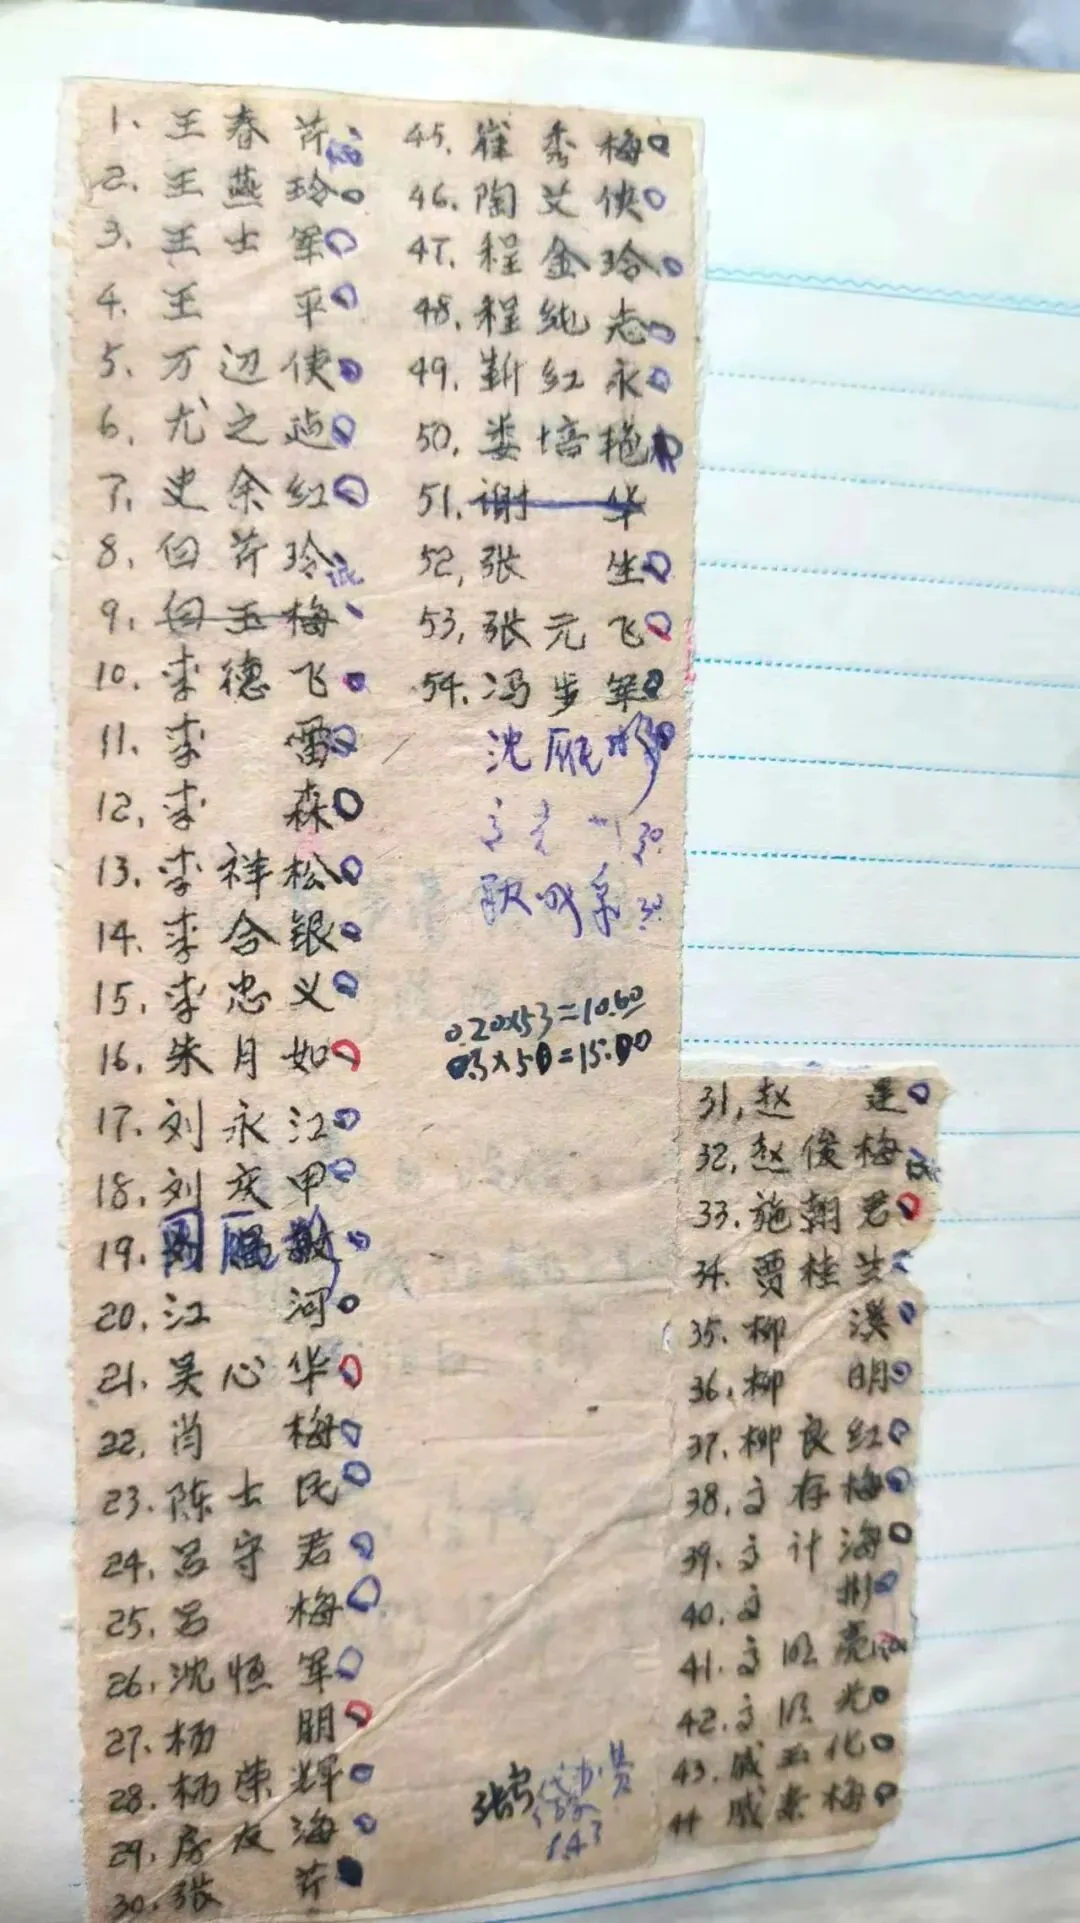 1、王春芹
2、王燕玲
3、王士军
4、王平
5、万迎侠
6、尤之
7、史余红
8、白芹玲
9、白玉梅
10、李德飞
11、李雷
12、李森
13、李祥松
14、李合银
15、李忠义
16、朱月如
17、刘永江
18、刘庆甲
19、
20、江河
21、吴心华
22、肖梅
23、陈士民
24、吕守君
25、吕梅
26、沈恒军
27、杨明
28、杨荣辉
29、房友海
30、张芹
31、赵莲
32、赵俊梅
33、施朝君
34、贾桂兰
35、柳溪
36、柳明
37、柳良红
38、存梅
39、计海
40、彬
41、亮
42、
43、戚玉化
44、戚素梅
45、崔秀梅
46、陶艾侠
47、程金玲
48、程纯志
49、靳红永
50、娄培艳
51、谢华
52、张生
53、张元飞
54、冯步军
沈雁
30
30
0.20×53=10.60
0.3×50=15.00